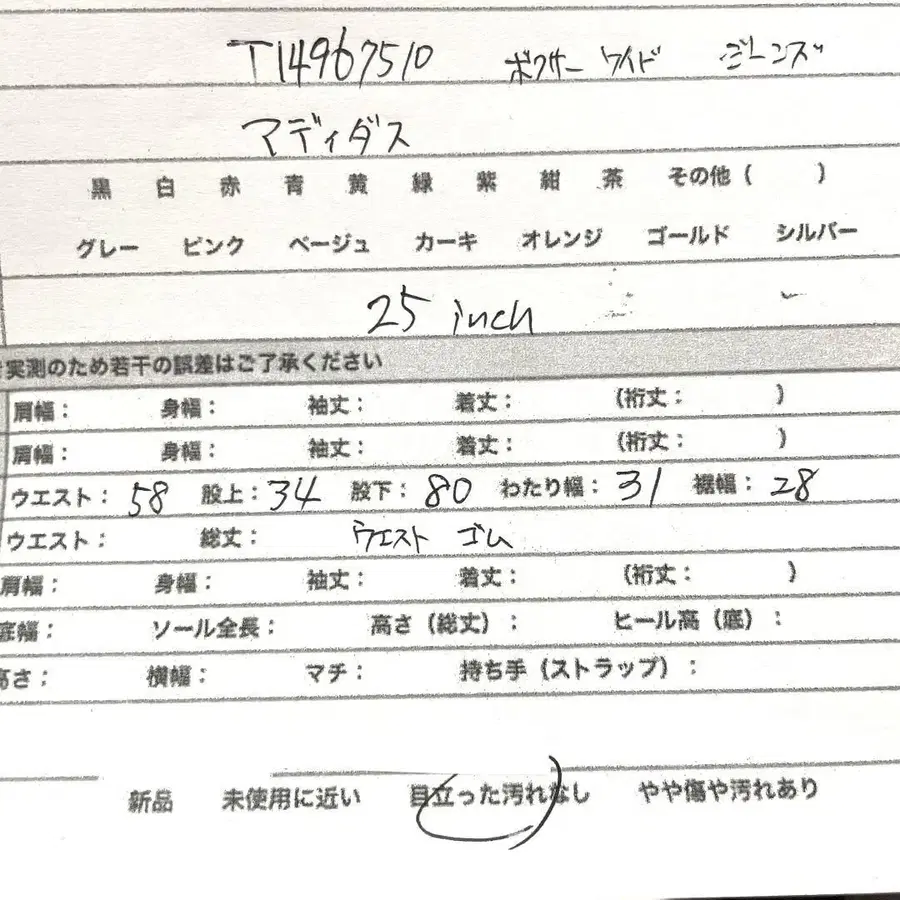 T14967510 ボクサー ワイド ジーンズ
マディダス
黒 白 赤 青 黄 緑 紫 紺 茶 その他 ( )
グレー ピンク ベージュ カーキ オレンジ ゴールド シルバー
25 inch
実測のため若干の誤差はご了承ください
肩幅： 身幅： 袖丈： 着丈： (裄丈： )
肩幅： 身幅： 袖丈： 着丈： (裄丈： )
ウエスト：58 股上：34 股下：80 わたり幅：31 裾幅：28
ウエスト： 総丈： ウエスト ゴム
肩幅： 身幅： 袖丈： 着丈： (裄丈： )
底幅： ソール全長： 高さ（総丈）： ヒール高（底）：
高さ： 横幅： マチ： 持ち手（ストラップ）：
新品 未使用に近い 目立った汚れなし やや傷や汚れあり